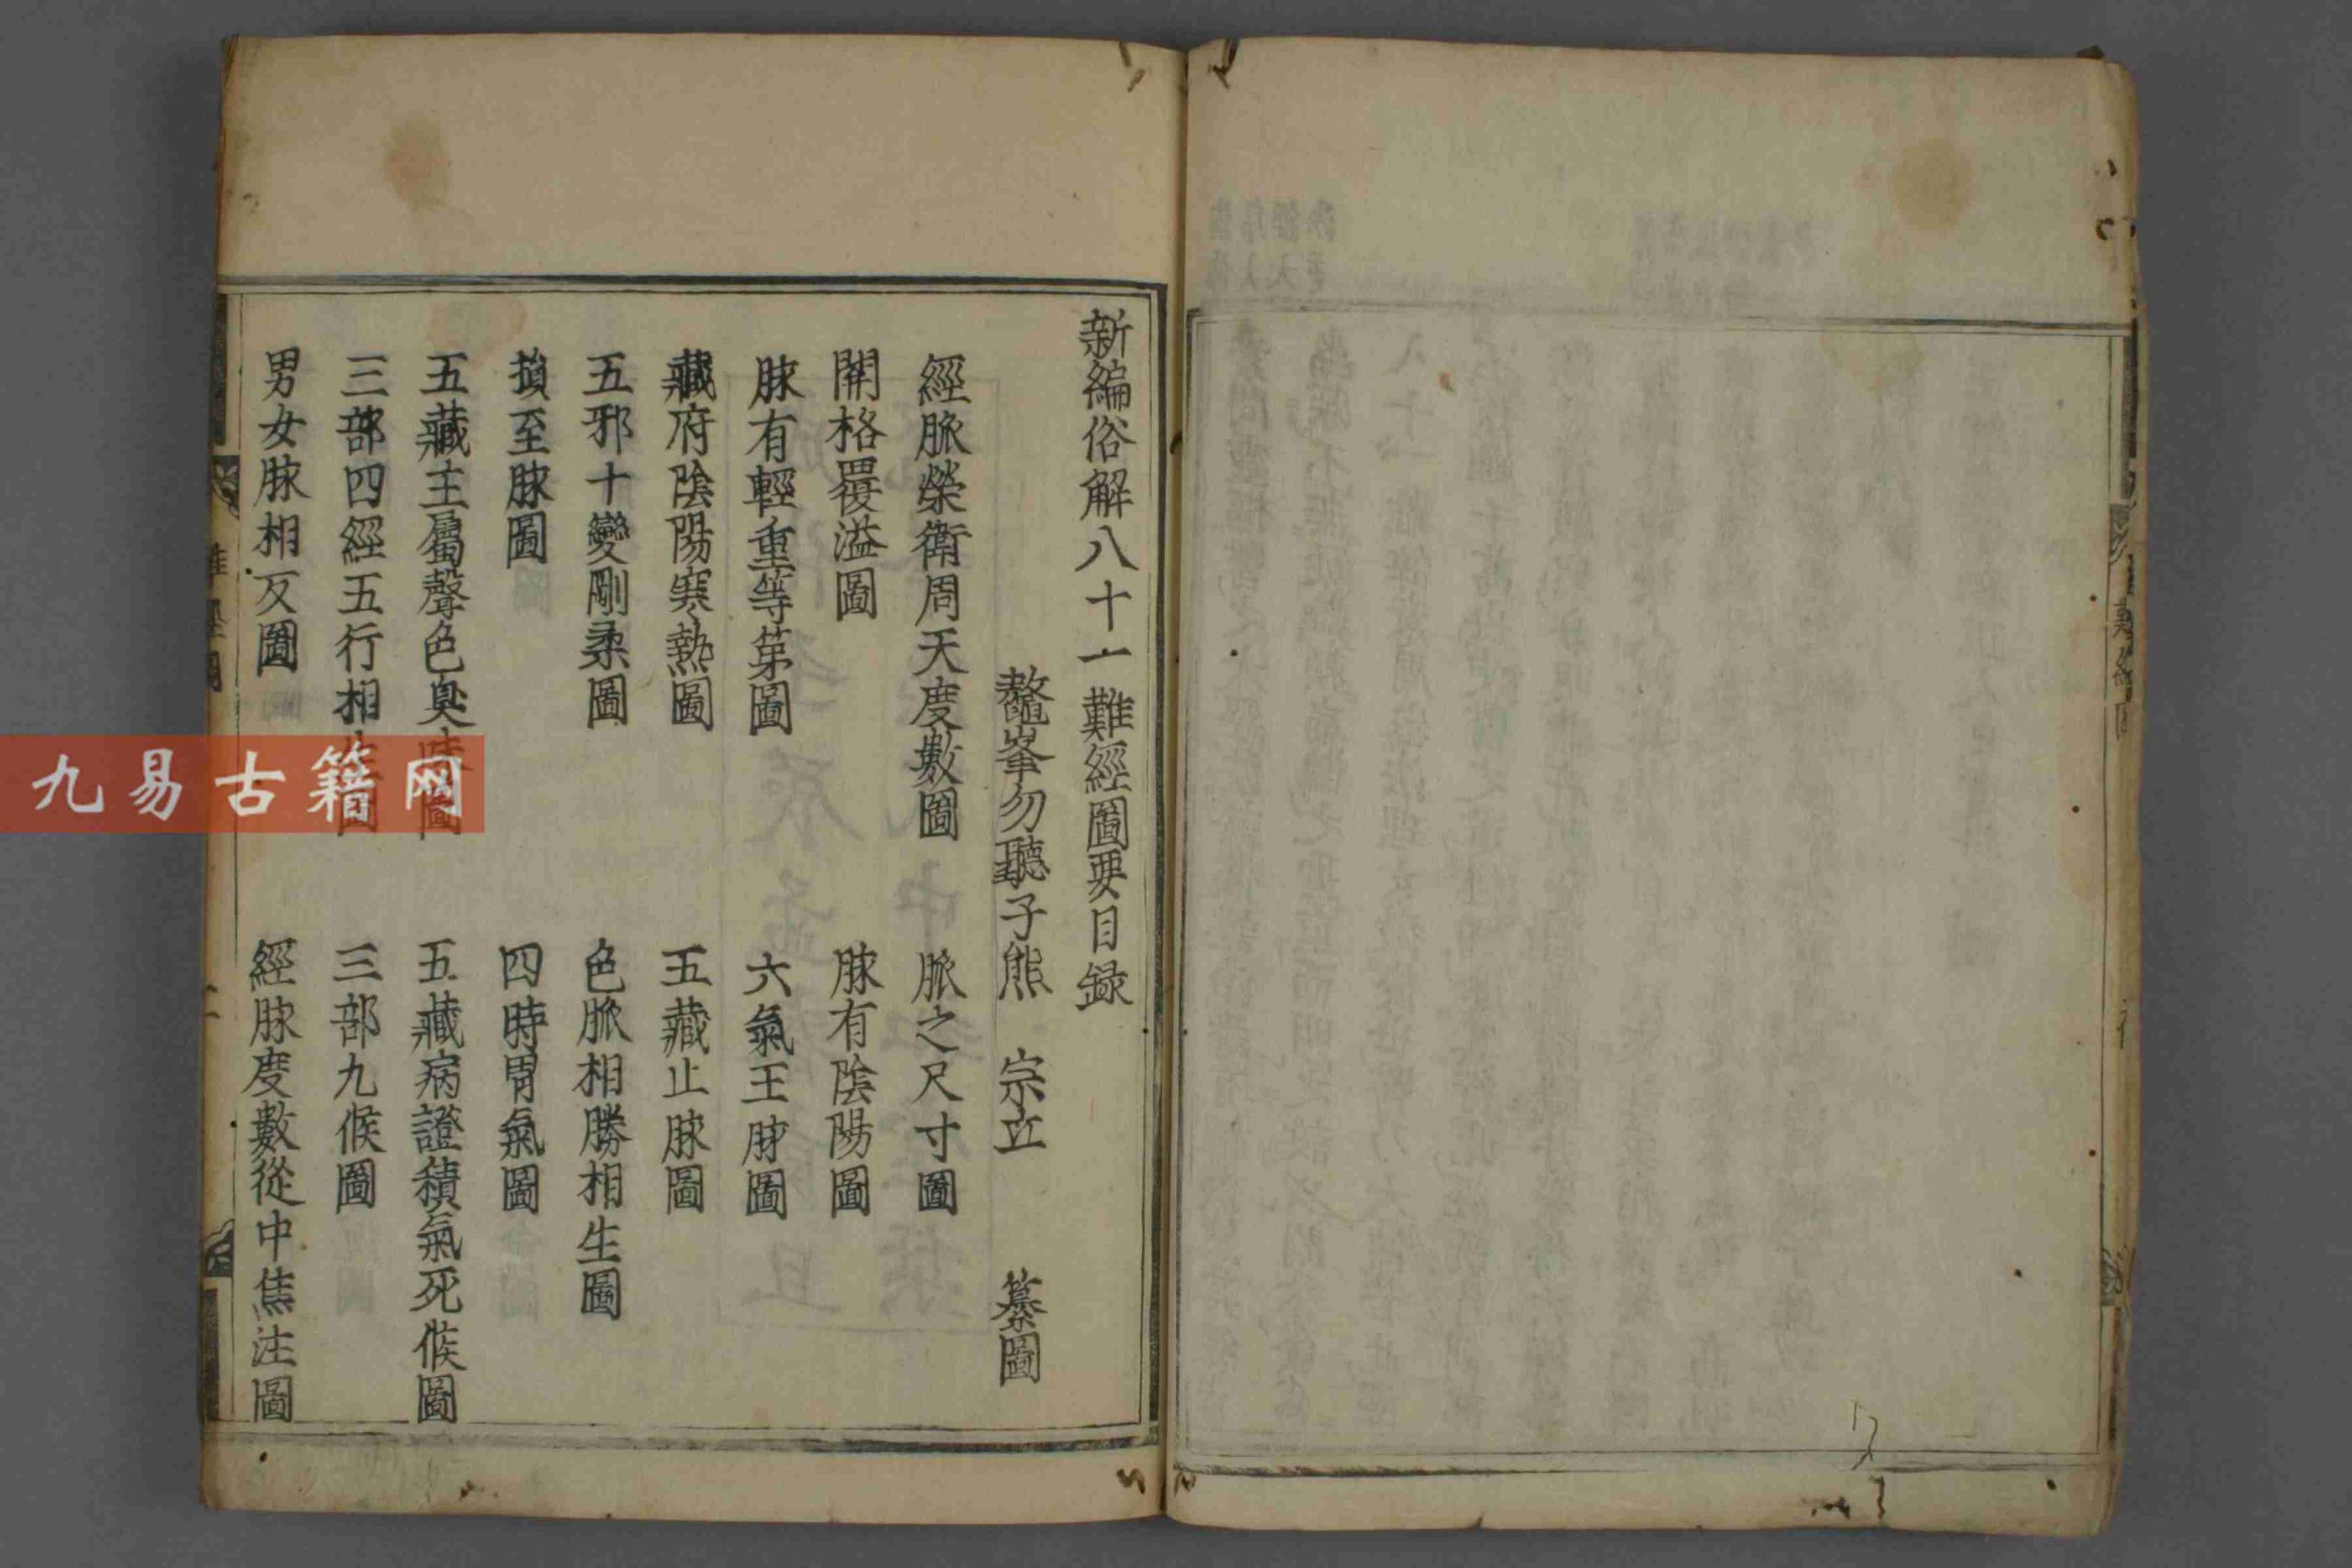 新編俗解八十一難經圖要目録
鰲峯勿聽子熊 宗立 纂圖
經脈榮衛周天度數圖 脈之尺寸圖
關格覆溢圖 脉有陰陽圖
脉有輕重等第圖 六氣王脉圖
藏府陰陽寒熱圖 五藏止脉圖
五邪十變剛柔圖 色脈相勝相生圖
損至脉圖 四時胃氣圖
五藏主屬聲色臭味圖 五藏病證積氣死候圖
三部四經五行相生圖 三部九候圖
男女脉相反圖 經脉度數從中焦注圖
九易古籍网